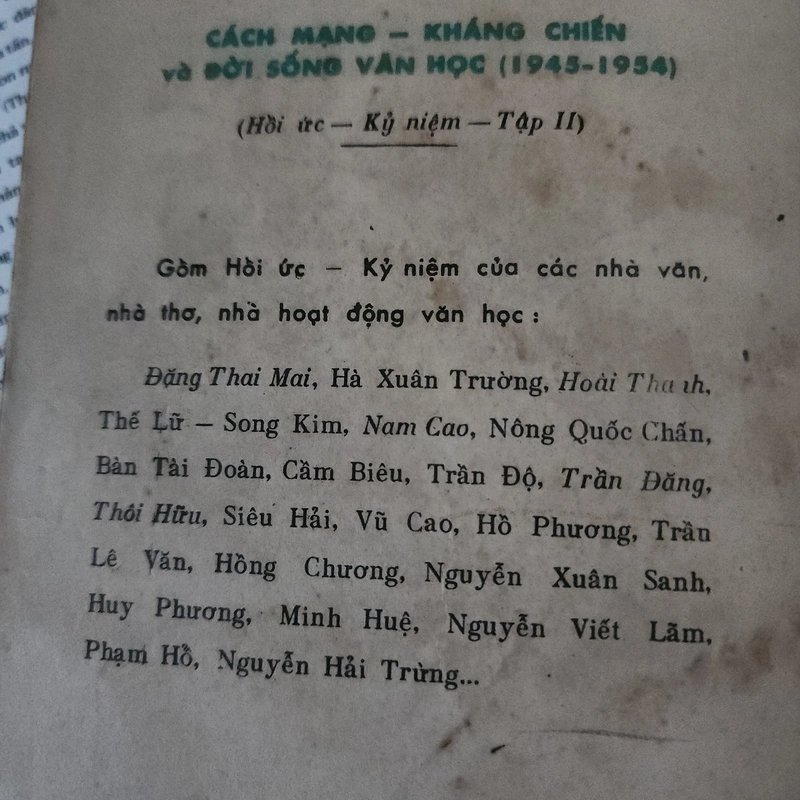 CÁCH MẠNG — KHÁNG CHIẾN
và ĐỜI SỐNG VĂN HỌC (1945-1954)
(Hồi ức — Kỷ niệm — Tập II)
Gồm Hồi ức — Kỷ niệm của các nhà văn,
nhà thơ, nhà hoạt động văn học :
Đặng Thai Mai, Hà Xuân Trường, Hoài Thanh,
Thế Lữ — Song Kim, Nam Cao, Nông Quốc Chấn,
Bàn Tài Đoàn, Cầm Biêu, Trần Độ, Trần Đăng,
Thôi Hữu, Siêu Hải, Vũ Cao, Hồ Phương, Trần
Lê Văn, Hồng Chương, Nguyễn Xuân Sanh,
Huy Phương, Minh Huệ, Nguyễn Viết Lãm,
Phạm Hồ, Nguyễn Hải Trừng...